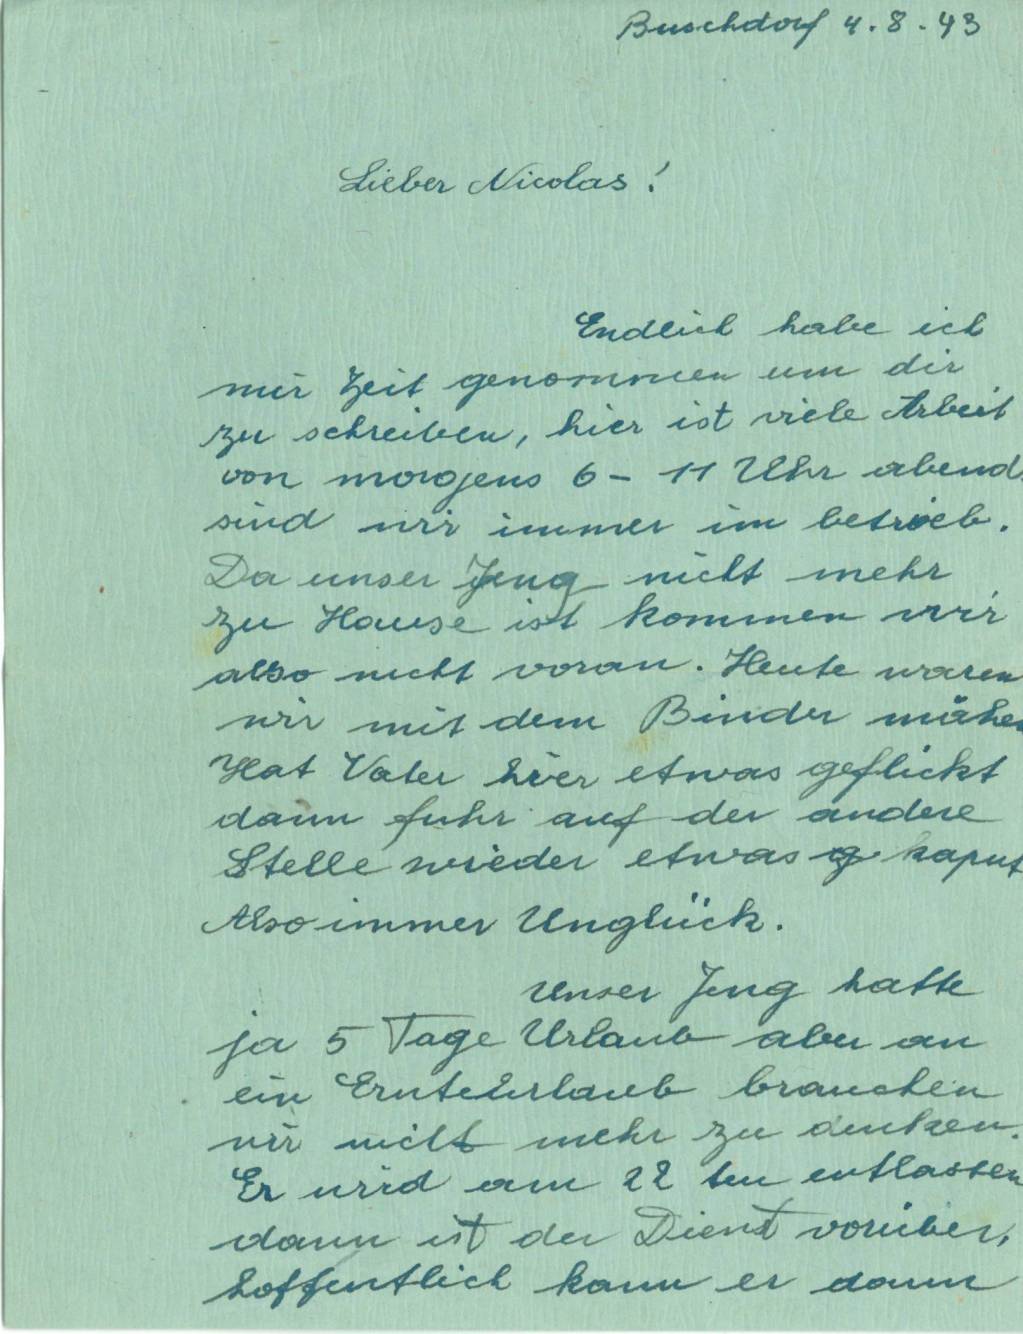 Buschdorf 4.8.43
Lieber Nicolas!
Endlich habe ich
mir Zeit genommen um dir
zu schreiben, hier ist viele Arbeit
von morgens 6 - 11 Uhr abends
sind wir immer im betrieb.
Da unser Jeng nicht mehr
zu Hause ist kommen wir
also nicht voran. Heute waren
wir mit dem Binder mähen
Hat Vater hier etwas geflickt
dann fuhr auf der andere
Stelle wieder etwas kaput
Also immer Unglück.
Unser Jeng hatte
ja 5 Tage Urlaub aber an
ein Ernteurlaub brauchen
wir nicht mehr zu denken.
Er wird am 22 ten entlassen
dann ist der Dienst vorüber,
hoffentlich kann er dann